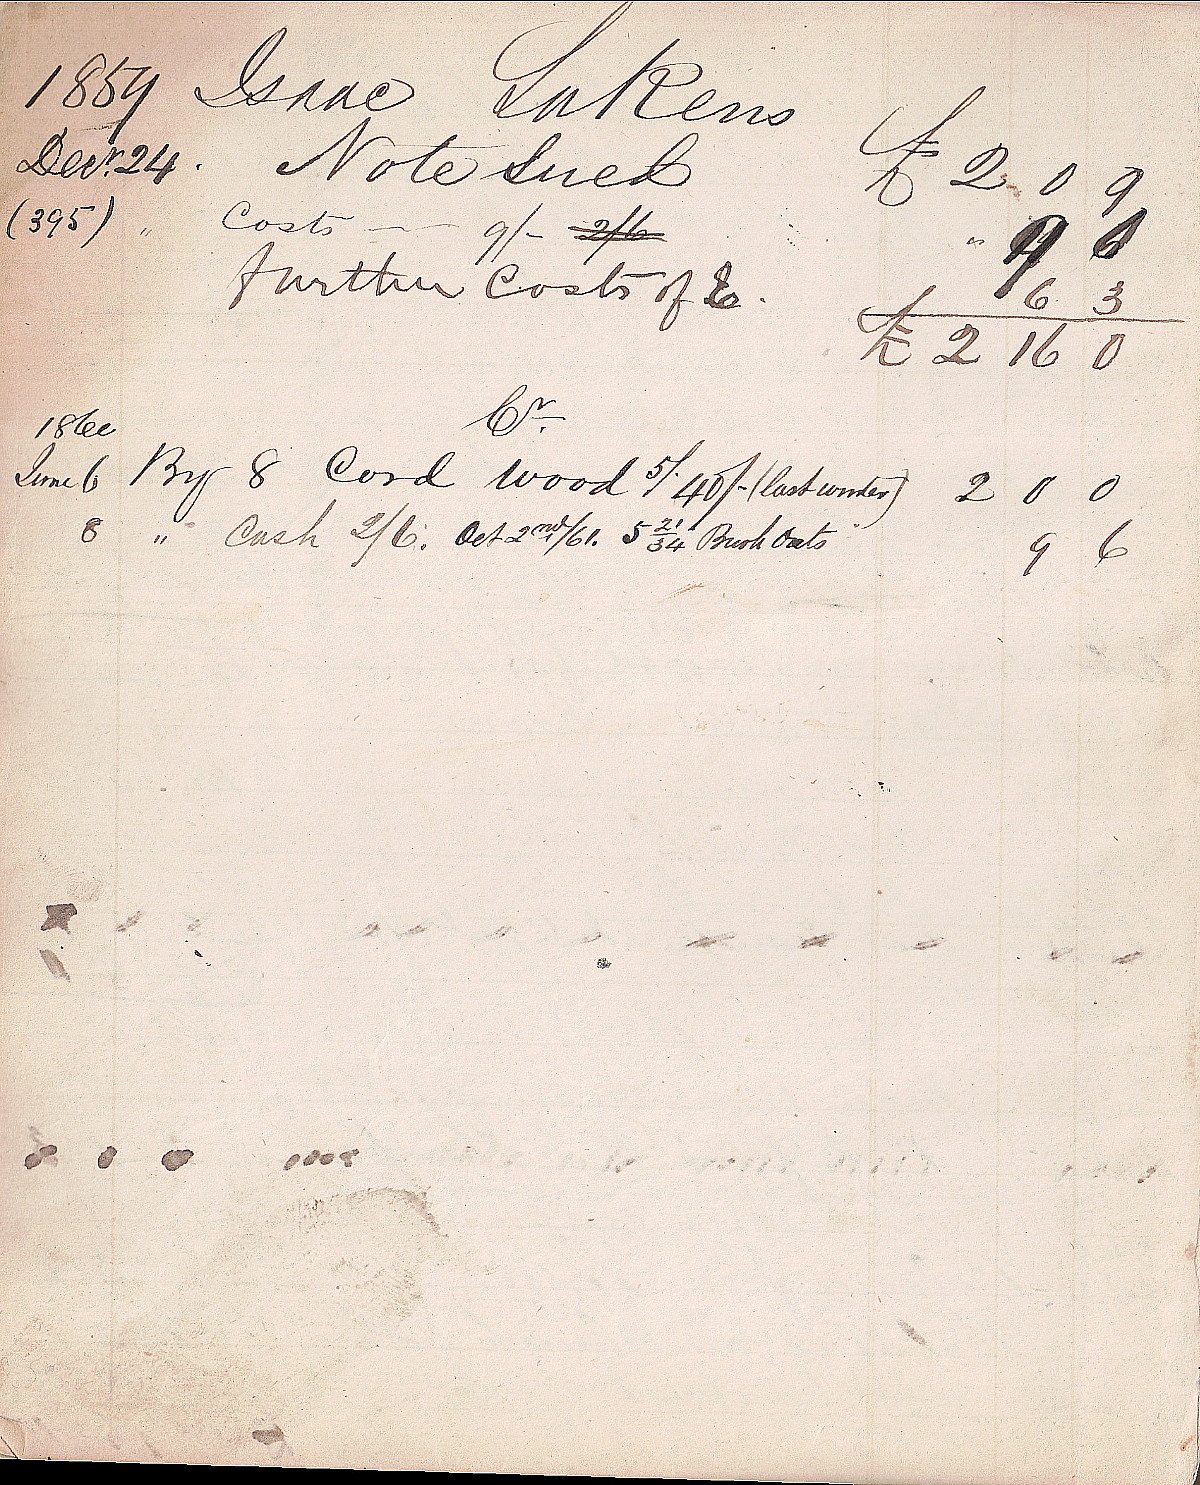 1859 Isaac Lukens
Decr. 24. Note Sued £ 2 0 9
(395) " Costs — 9/- 2/6 " 9
further Costs of 6 3
£ 2 16 0
Cr.
1860
June 6 By 8 Cord wood 5/. 40/- (last winter) 2 0 0
8 " Cash 2/6. Oct 2nd/61. 5 21/34 Bush Oats 9 6